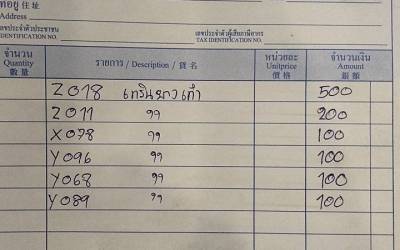 ที่อยู่ 住 址
Address
เลขประจำตัวประชาชน เลขประจำตัวผู้เสียภาษีอากร
IDENTIFICATION NO. TAX IDENTIFICATION NO.
จำนวน รายการ / Description / 貨 名 หน่วยละ จำนวนเงิน
Quantity Unitprice Amount
數 量 價 格 銀 額
Z018 500
Z011 " 200
X078 " 100
Y096 " 100
Y068 " 100
Y089 " 100